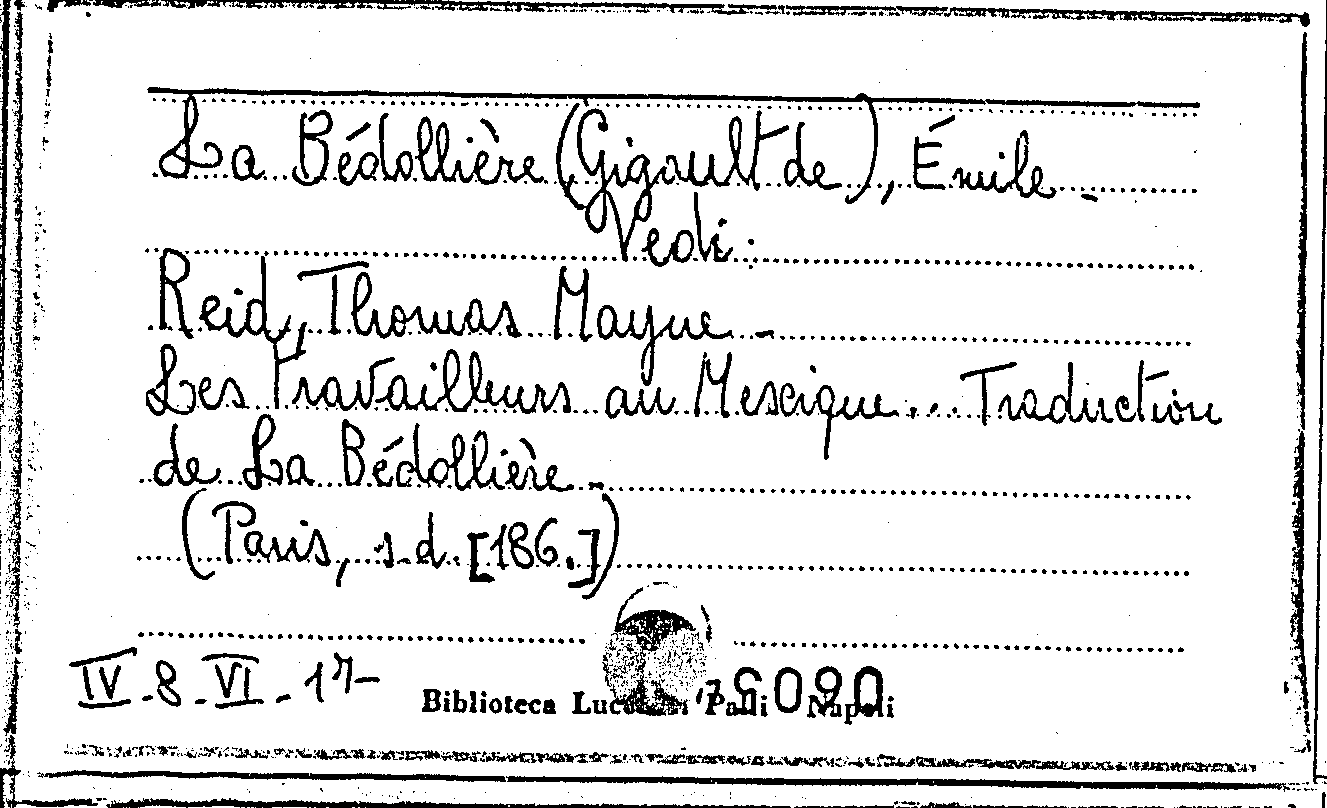 La Bédollière (Gigault de), Émile -
Vedi:
Reid, Thomas Mayne -
Les travailleurs au Mescique... Traduction
de La Bédollière -
(Paris, s.d. [186.])
IV - 8 - VI - 17 -
Biblioteca Napoli